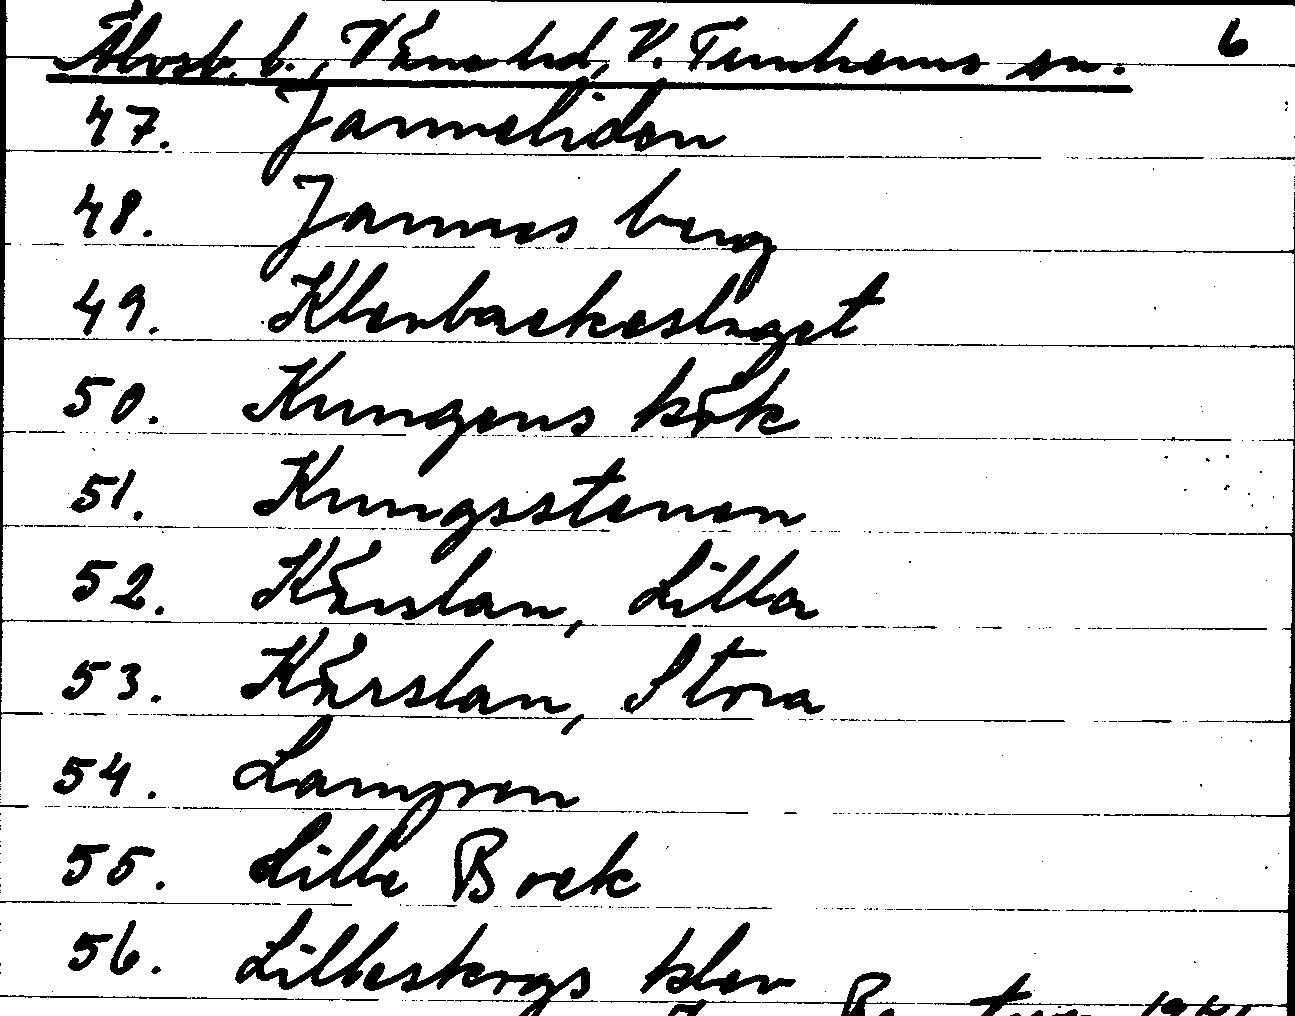 Älvsb. l., Väne hd, V. Tunhems sn. 6
47. Jannelidon
48. Jannes berg
49. Klevbackeslaget
50. Kungens kök
51. Kungsstenen
52. Kärslan, Lilla
53. Kärslan, Stora
54. Langron
55. Lille Bock
56. Lillesbergs klev